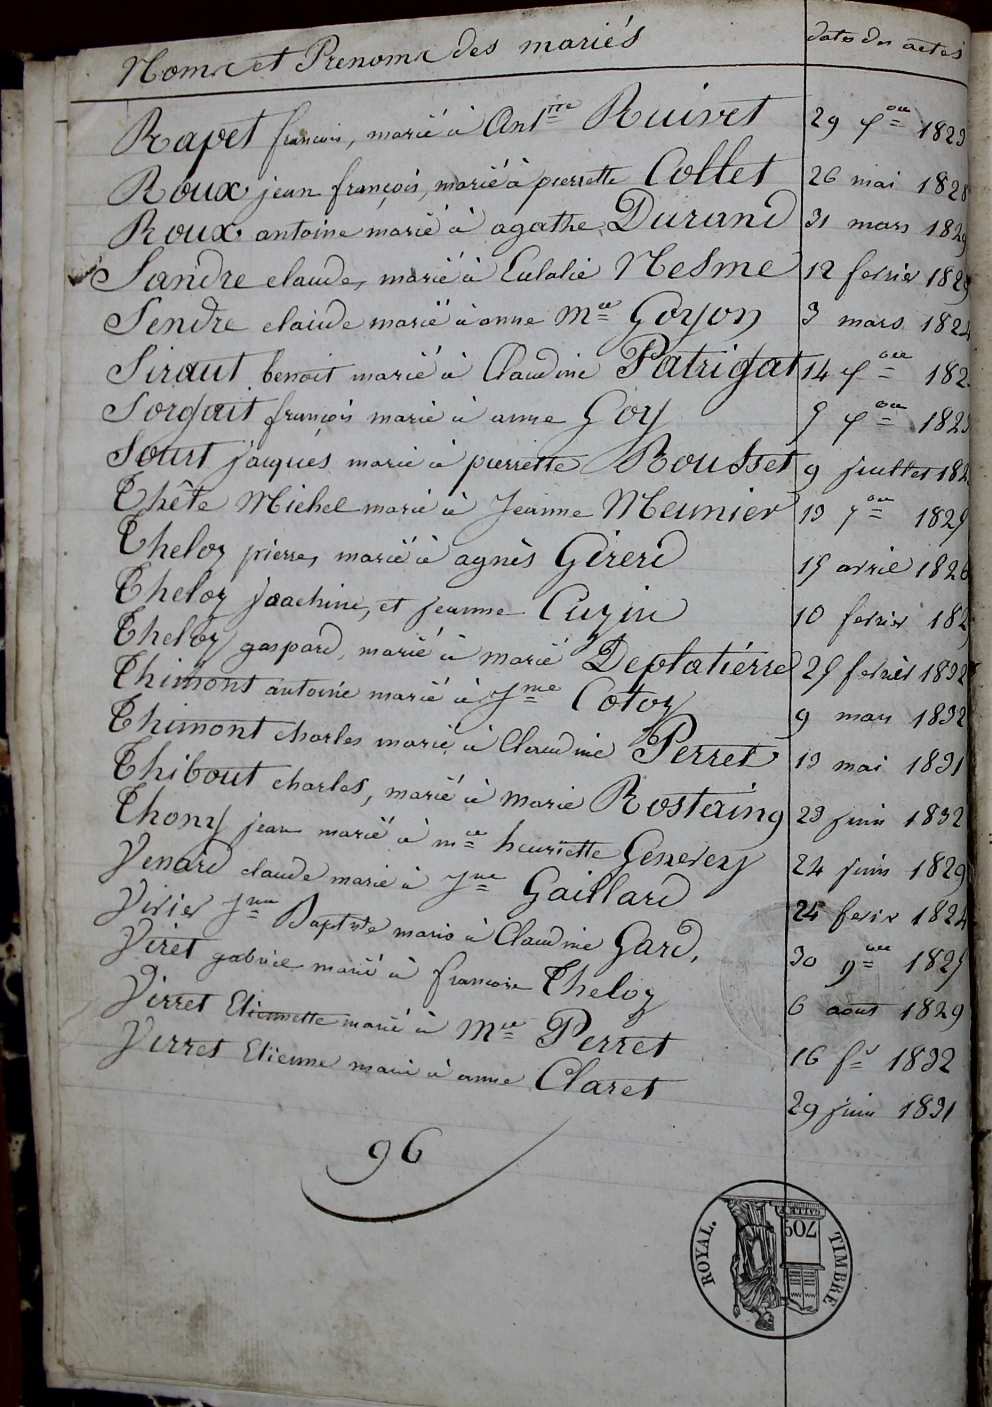 Noms et Prenoms des mariés date des actes
Rapet francois, marié à Antme Ruivet 29 xbre 1823
Roux jean françois, marié à pierrette Collet 26 mai 1828
Roux antoine marié à agathe Durand 31 mars 1829
Sandre claude, marié à Eulalie Nesme 12 fevrier 1829
Sendre claude marié à anne Mie Goyon 3 mars 1824
Siraut benoit marié à Claudine Patrigat 14 182
françois marié à anne Goy 1823
Sourt jacques marié à pierrette Rousset 9 juillet 182
Thête Michel marié à Jeanne Meunier 13 1825
Theloz pierre, marié à agnès Gérerd 15 avril 1826
Theloz joachim, et jeanne Cuzin 10 fevrier 182
Theloz gaspard, marié à marie Deplatiérre 25 fevrier 1832
Thimont antoine marié à Jme Cotoz 9 mars 1832
Thimont charles marié à Claudine Perret 13 mai 1831
Thibout charles, marié à marie Rostaing 23 juin 1832
Thony jean marié à mie henriette Genevey 24 juin 1829
Venard claude marié à Jne Gaillard 24 fevrier 1824
Baptiste marié à Claudine Gard, 30 9bre 1825
Viret gabriel marié à francoise Theloz 6 aout 1829
Virret Etiennette marié à Mie Perret 16 fr 1832
Virret Etienne marié à anne Claret 29 juin 1831
96
TIMBRE ROYAL.